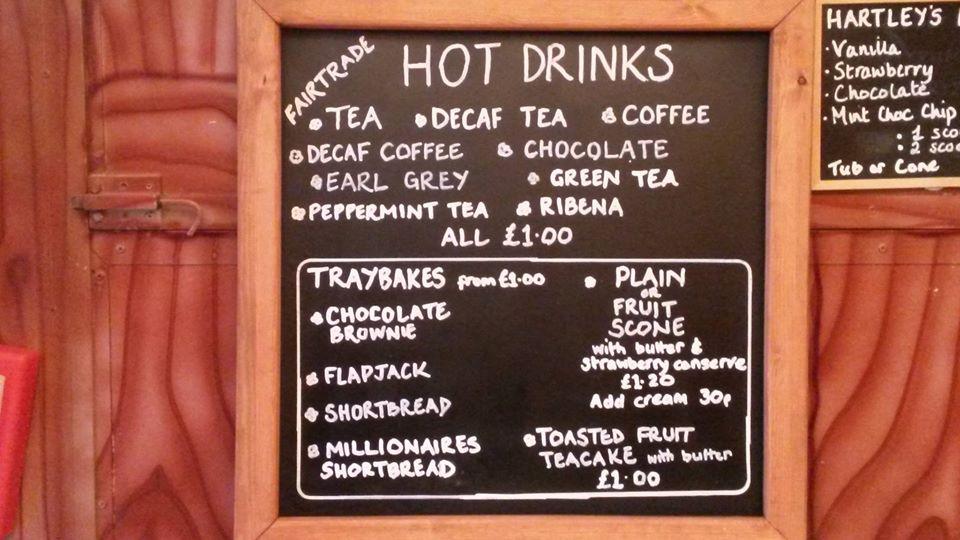 HOT DRINKS
FAIRTRADE
TEA DECAF TEA COFFEE
DECAF COFFEE CHOCOLATE
EARL GREY GREEN TEA
PEPPERMINT TEA RIBENA
ALL £1.00
TRAYBAKES from £1.00
CHOCOLATE
BROWNIE
FLAPJACK
SHORTBREAD
MILLIONAIRES
SHORTBREAD
PLAIN
OR
FRUIT
SCONE
with butter &
strawberry conserve
£1.20
Add cream 30p
TOASTED FRUIT
TEACAKE with butter
£1.00
HARTLEY'S
Vanilla
Strawberry
Chocolate
Mint Choc Chip
1
2
Tub or Cone